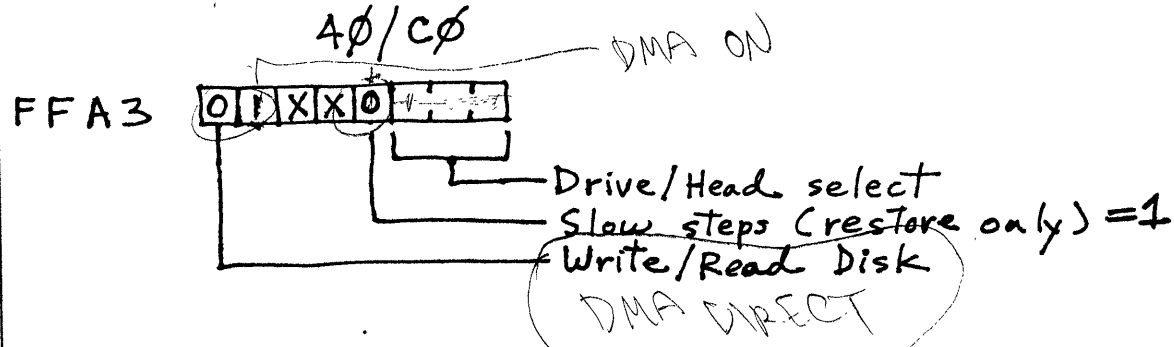 4Ø/CØ
DMA ON
FFA3 0 1 X X 0
Drive/Head select
Slow steps (restore only) =1
Write/Read Disk
DMA DIRECT